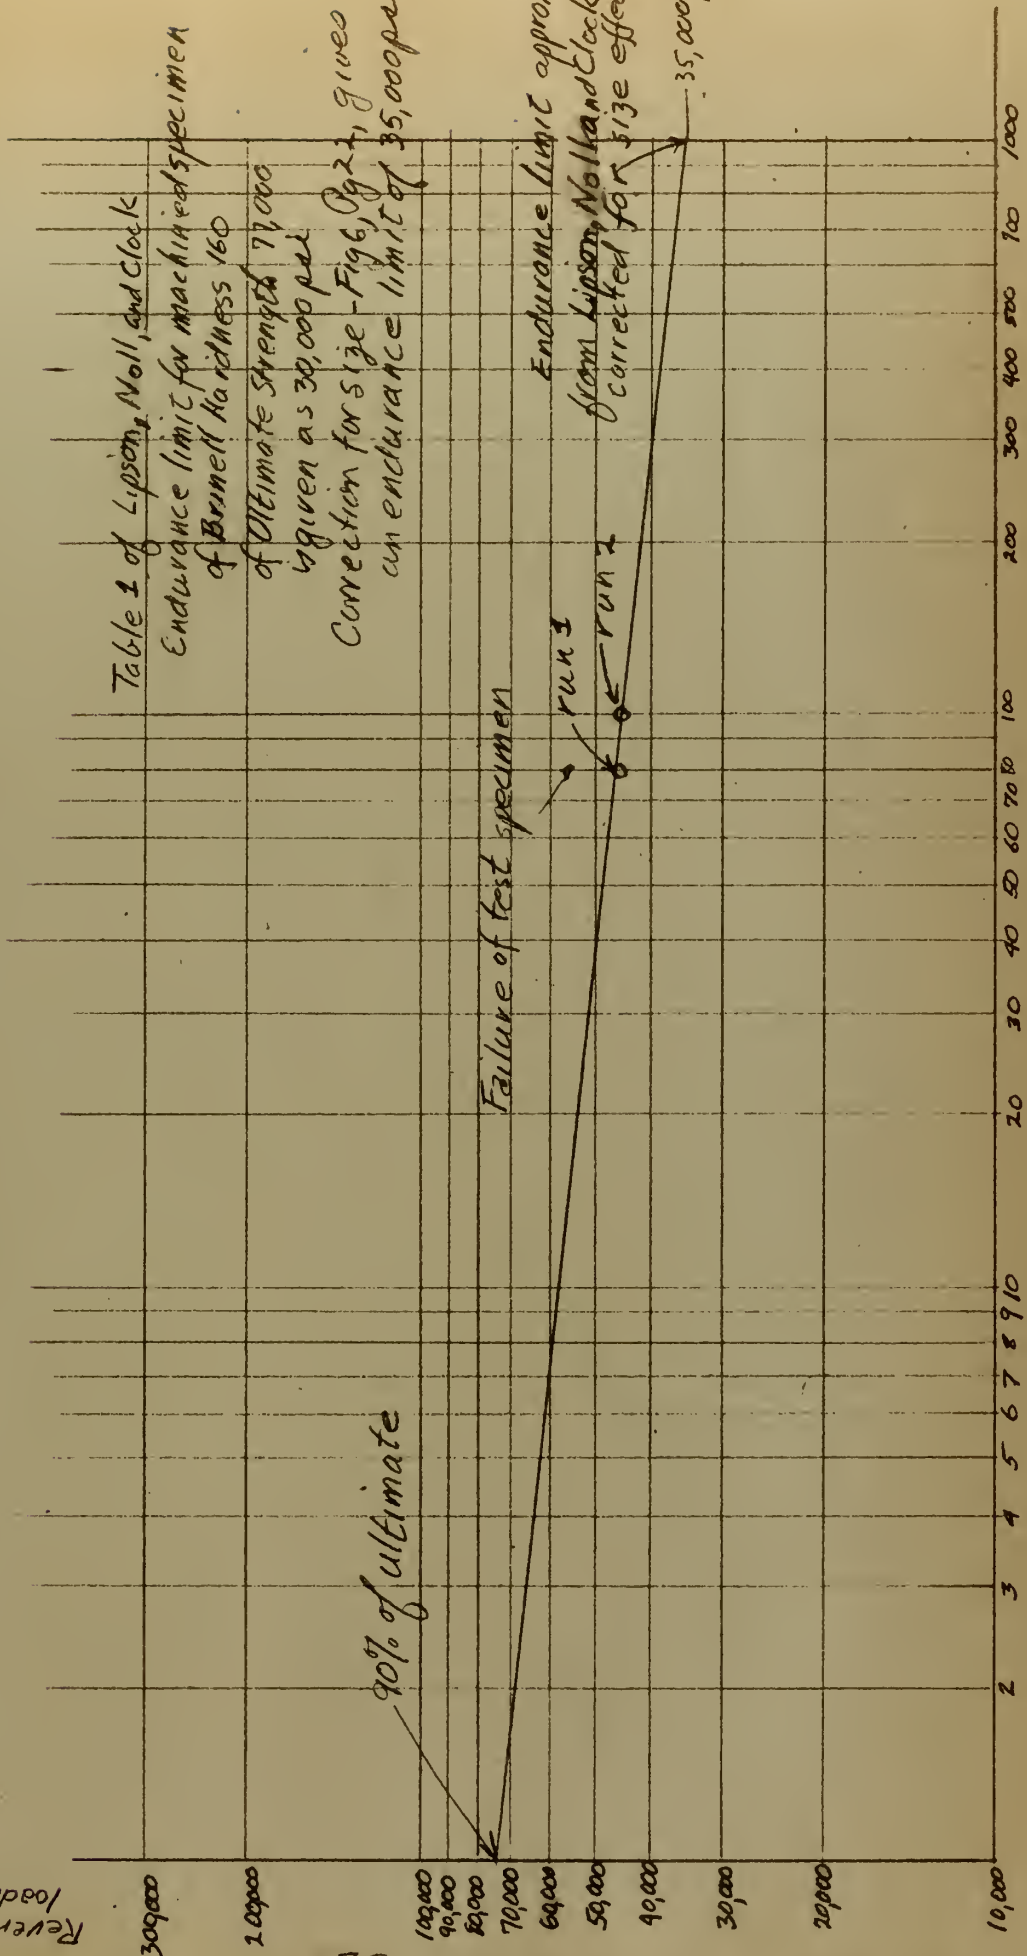 Table 1 of Lipson, Noll, and Clock
Endurance limit for machined specimen
of Brinell Hardness 160
of Ultimate Strength 77,000
is given as 30,000 psi
Correction for size - Fig 6, Pg 22, gives
an endurance limit of 35,000 ps
Endurance limit appro
from Lipson, Noll and Clock
corrected for size effe
35,000
run 1
run 2
Failure of test
specimen
90% of ultimate
Rever
load
300,000
200,000
100,000
90,000
80,000
70,000
60,000
50,000
40,000
30,000
20,000
10,000
2 3 4 5 6 7 8 9 10 20 30 40 50 60 70 80 100 200 300 400 500 700 1000